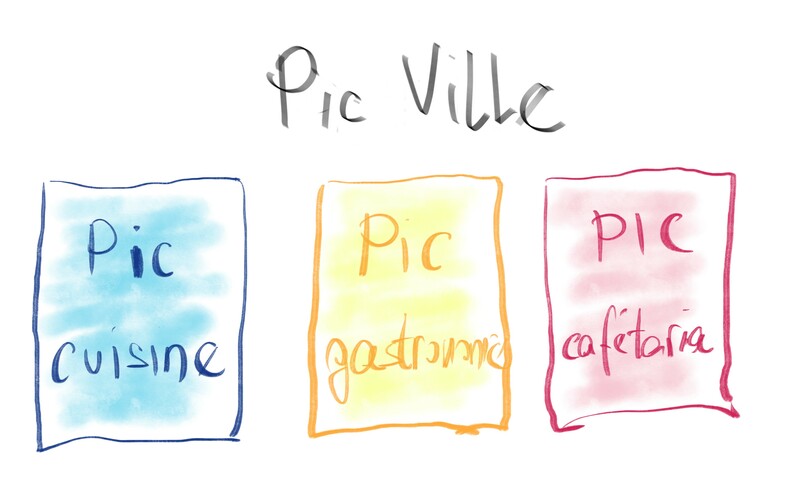 Pic Ville
Pic
cuisine
Pic
gastronomie
PIC
cafétaria